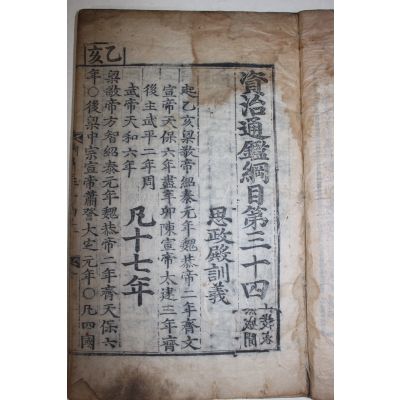 資治通鑑綱目第三十四
思政殿訓義
起乙亥梁敬帝紹泰元年魏恭帝二年齊文
宣帝天保六年盡辛卯陳宣帝太建三年齊
後主武平二年周
武帝天和六年
凡十七年
乙亥
梁敬帝方智紹泰元年魏恭帝二年齊天保六
年○後梁中宗宣帝蕭詧大定元年○凡四國